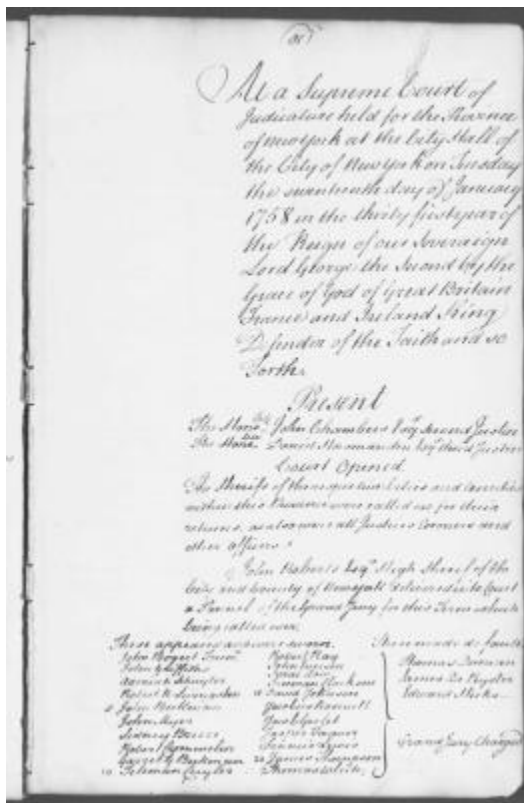 At a Supreme Court of
Judicature held for the Province
of New York at the City Hall of
the City of New York on Tuesday
the seventeenth day of January
1758 in the thirty first year of
the Reign of our Sovereign
Lord George the Second by the
Grace of God of Great Britain
France and Ireland King
Defender of the Faith and so
Forth.
Present
The Honble John Chambers Esqr. Second Justice
The Honble Daniel Horsmanden Esqr. third Justice
Court Opened
The Sheriffs of the respective Cities and Counties
within this Province were called us for their
returns, as also were all Justices Coroners and
other officers.
John Roberts Esqr. High Sheriff of the
City and County of New York delivered into Court
a Pannel of the Grand Jury for this Term which
being called over
These appeared and were sworn
These made default
John Bogert Junr.
John Griffith
Robert R. Livingston
5 John
John Myer
Sidney Breese
Robert Crommelin
Garret Beekman
10 Teleman Cuyler
Robert Ray
John
Isaac
15 David Johnson
Jacobus Roosevelt
20 James Thompson
Thomas
Thomas
James De Peyster
Edward
Grand Jury Charged